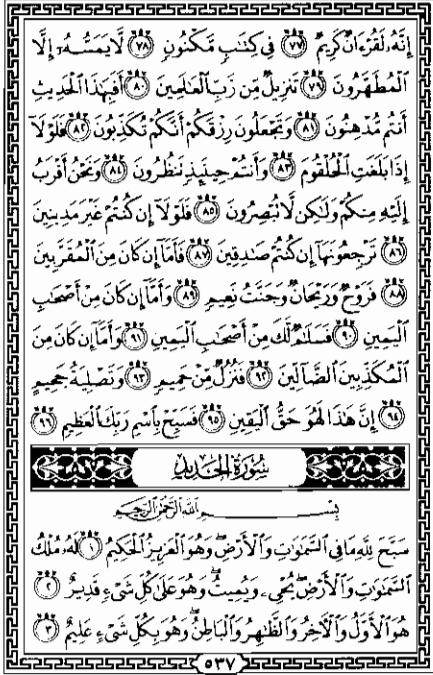 إِنَّهُۥ لَقُرْءَانٌ كَرِيمٌ ٧٧ فِى كِتَٰبٍ مَّكْنُونٍ ٧٨ لَّا يَمَسُّهُۥٓ إِلَّا
ٱلْمُطَهَّرُونَ ٧٩ تَنزِيلٌ مِّن رَّبِّ ٱلْعَٰلَمِينَ ٨٠ أَفَبِهَٰذَا ٱلْحَدِيثِ
أَنتُم مُّدْهِنُونَ ٨١ وَتَجْعَلُونَ رِزْقَكُمْ أَنَّكُمْ تُكَذِّبُونَ ٨٢ فَلَوْلَآ
إِذَا بَلَغَتِ ٱلْحُلْقُومَ ٨٣ وَأَنتُمْ حِينَئِذٍ تَنظُرُونَ ٨٤ وَنَحْنُ أَقْرَبُ
إِلَيْهِ مِنكُمْ وَلَٰكِن لَّا تُبْصِرُونَ ٨٥ فَلَوْلَآ إِن كُنتُمْ غَيْرَ مَدِينِينَ
٨٦ تَرْجِعُونَهَآ إِن كُنتُمْ صَٰدِقِينَ ٨٧ فَأَمَّآ إِن كَانَ مِنَ ٱلْمُقَرَّبِينَ
٨٨ فَرَوْحٌ وَرَيْحَانٌ وَجَنَّتُ نَعِيمٍ ٨٩ وَأَمَّآ إِن كَانَ مِنْ أَصْحَٰبِ
ٱلْيَمِينِ ٩٠ فَسَلَٰمٌ لَّكَ مِنْ أَصْحَٰبِ ٱلْيَمِينِ ٩١ وَأَمَّآ إِن كَانَ مِنَ
ٱلْمُكَذِّبِينَ ٱلضَّآلِّينَ ٩٢ فَنُزُلٌ مِّنْ حَمِيمٍ ٩٣ وَتَصْلِيَةُ جَحِيمٍ
٩٤ إِنَّ هَٰذَا لَهُوَ حَقُّ ٱلْيَقِينِ ٩٥ فَسَبِّحْ بِٱسْمِ رَبِّكَ ٱلْعَظِيمِ ٩٦
سُورَةُ الحَدِيدِ
بِسْمِ ٱللَّهِ ٱلرَّحْمَٰنِ ٱلرَّحِيمِ
سَبَّحَ لِلَّهِ مَا فِى ٱلسَّمَٰوَٰتِ وَٱلْأَرْضِ ۖ وَهُوَ ٱلْعَزِيزُ ٱلْحَكِيمُ ١ لَهُۥ مُلْكُ
ٱلسَّمَٰوَٰتِ وَٱلْأَرْضِ ۖ يُحْىِۦ وَيُمِيتُ ۖ وَهُوَ عَلَىٰ كُلِّ شَىْءٍ قَدِيرٌ ٢
هُوَ ٱلْأَوَّلُ وَٱلْءَاخِرُ وَٱلظَّٰهِرُ وَٱلْبَاطِنُ ۖ وَهُوَ بِكُلِّ شَىْءٍ عَلِيمٌ ٣
٥٣٧